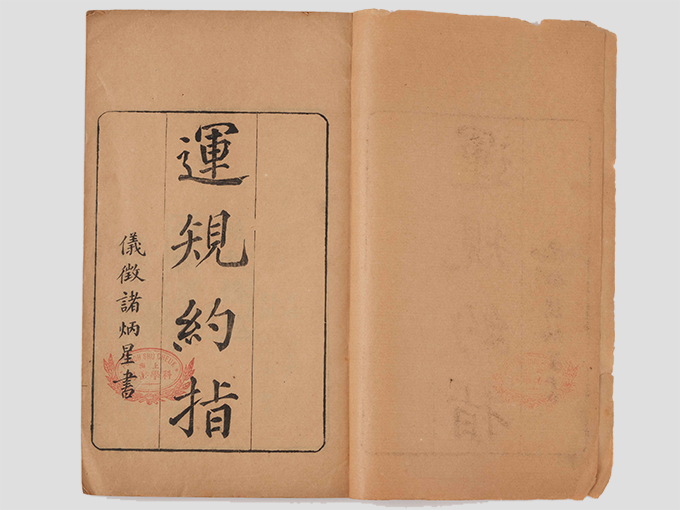 運規約指
儀徵諸炳星書